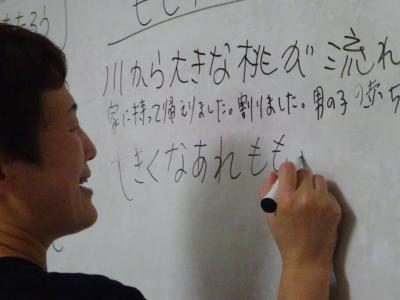 ももたろう
川から大きな桃が流れ
家に持って帰えりました。割りました。男の子の赤ち
大きくなあれもも